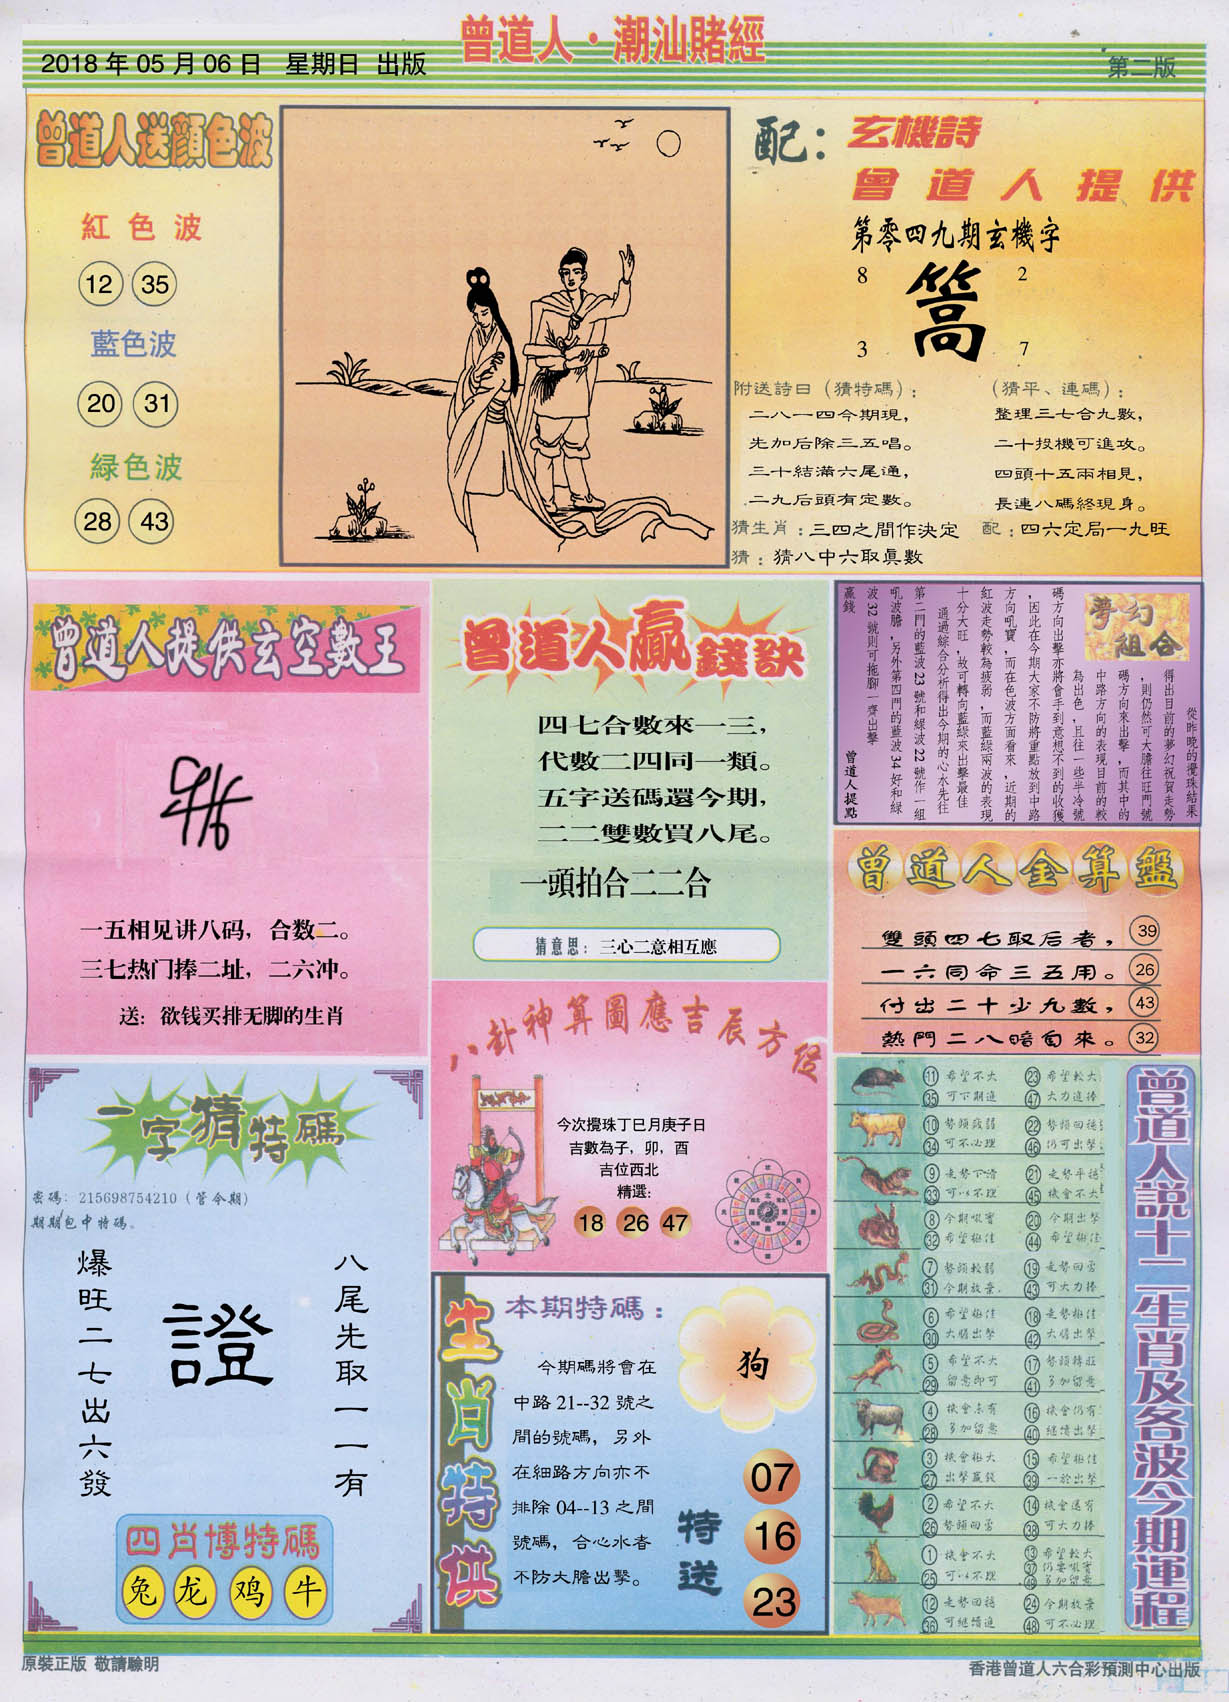 曾道人·潮汕賭經
2018 年 05 月 06 日 星期日 出版
第二版
曾道人送顏色波
紅色波
12 35
藍色波
20 31
緑色波
28 43
配：
玄機詩
曾道人提供
第零四九期玄機字
8 2
篙
3 7
附送詩曰（猜特碼）：
二八一四今期現，
先加后除三五唱。
三十結滿六尾通，
二九后頭有定數。
（猜平、連碼）：
整理三七合九數，
二十投機可進攻。
四頭十五兩相見，
長連八碼終現身。
猜生肖：三四之間作決定
配：四六定局一九旺
猜：猜八中六取眞數
曾道人提供玄空數王
一五相见讲八码，合数二。
三七热门捧二址，二六冲。
送：欲钱买排无脚的生肖
曾道人贏錢訣
四七合數來一三，
代數二四同一類。
五字送碼還今期，
二二雙數買八尾。
一頭拍合二二合
猜意思：三心二意相互應
夢幻
組合
從昨晚的攪珠結果
得出目前的夢幻祝賀走勢
，則仍然可大膽往旺門號
碼方向來出擊，而其中的
中路方向的表現目前的較
為出色，且往一些半冷號
碼方向出擊亦將會手到意想不到的收獲
，因此在今期大家不防將重點放到中路
方向吼寶，而在色波方面看來，近期的
紅波走勢較為疲弱，而藍綠兩波的表現
十分大旺，故可轉向藍綠來出擊最佳
通過綜合分析得出今期的心水先往
第二門的藍波 23 號和綠波 22 號作一組
吼波膽，另外第四門的藍波 34 好和綠
波 32 號則可拖腳一齊出擊
贏錢
曾道人提點
曾道人金算盤
雙頭四七取后者，39
一六同命三五用。26
付出二十少九數，43
熱門二八暗自來。32
八卦神算圖應吉辰方位
今次攪珠丁巳月庚子日
吉數為子，卯，酉
吉位西北
精選：
18 26 47
一字猜特碼
密碼：215698754210（管今期）
期期包中特碼。
八尾先取一一有
證
爆旺二七出六發
四肖博特碼
兔 龙 鸡 牛
生肖特供
本期特碼：
今期碼將會在
中路 21--32 號之
間的號碼，另外
在細路方向亦不
排除 04--13 之間
號碼，合心水者
不防大膽出擊。
狗
特送
07
16
23
曾道人説十二生肖及各波今期運程
11 希望不大 23 希望較大
35 可下期進 47 大力追捧
10 勢頭疲弱 22 勢頭回穩
34 可不必理 46 仍可出擊
9 走勢下滑 21 走勢平穩
33 可以不理 45 機會不大
8 今期吸寶 20 今期出擊
32 希望極佳 44 希望極佳
7 勢頭較弱 19 走勢回勇
31 今期放棄 43 可大力捧
6 希望極佳 18 走勢極佳
30 大膽出擊 42 大膽出擊
5 希望不大 17 勢頭轉旺
29 留意即可 41 多加留意
4 機會未有 16 機會仍有
28 多加留意 40 繼續出擊
3 機會極大 15 希望極佳
27 出擊贏錢 39 一於出擊
2 希望不大 14 機會還有
26 勢頭回勇 38 可大力捧
1 機會不大 13 希望較大
25 可以不理 37 仍要吸寶
49 多加留意
12 走勢回穩 24 今期放棄
36 可繼續進 48 可不必理
原裝正版 敬請驗明
香港曾道人六合彩預測中心出版